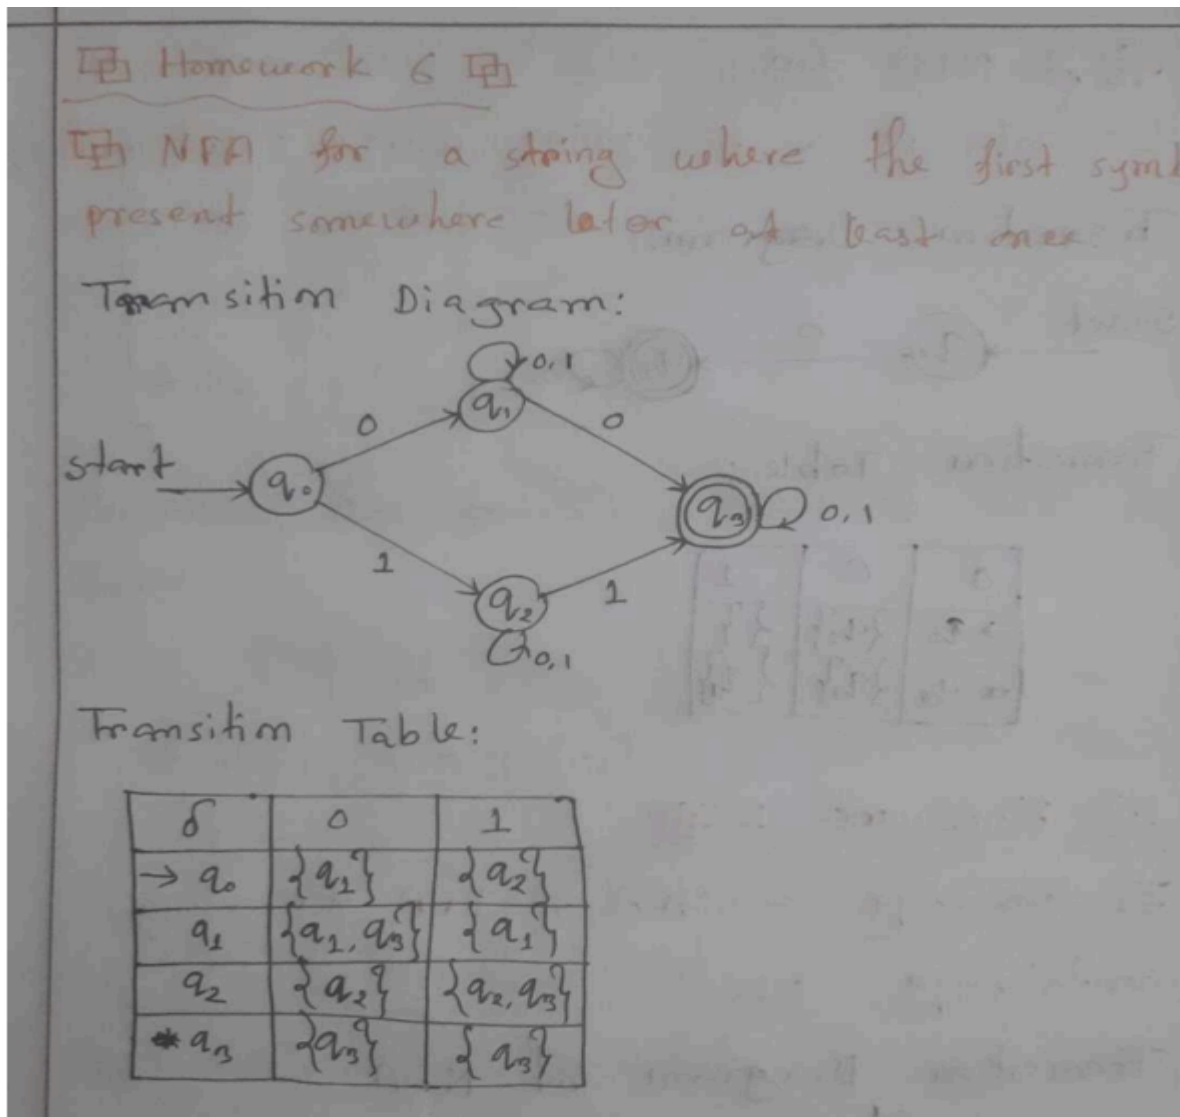 Homework 6
NFA for a string where the first symb
present somewhere later at least once
Transition Diagram:
0,1
q1
0
0
start
q0
q3
0,1
1
1
q2
0,1
Transition Table:
δ 0 1
→ q0 {q1} {q2}
q1 {q1, q3} {q1}
q2 {q2} {q2, q3}
* q3 {q3} {q3}